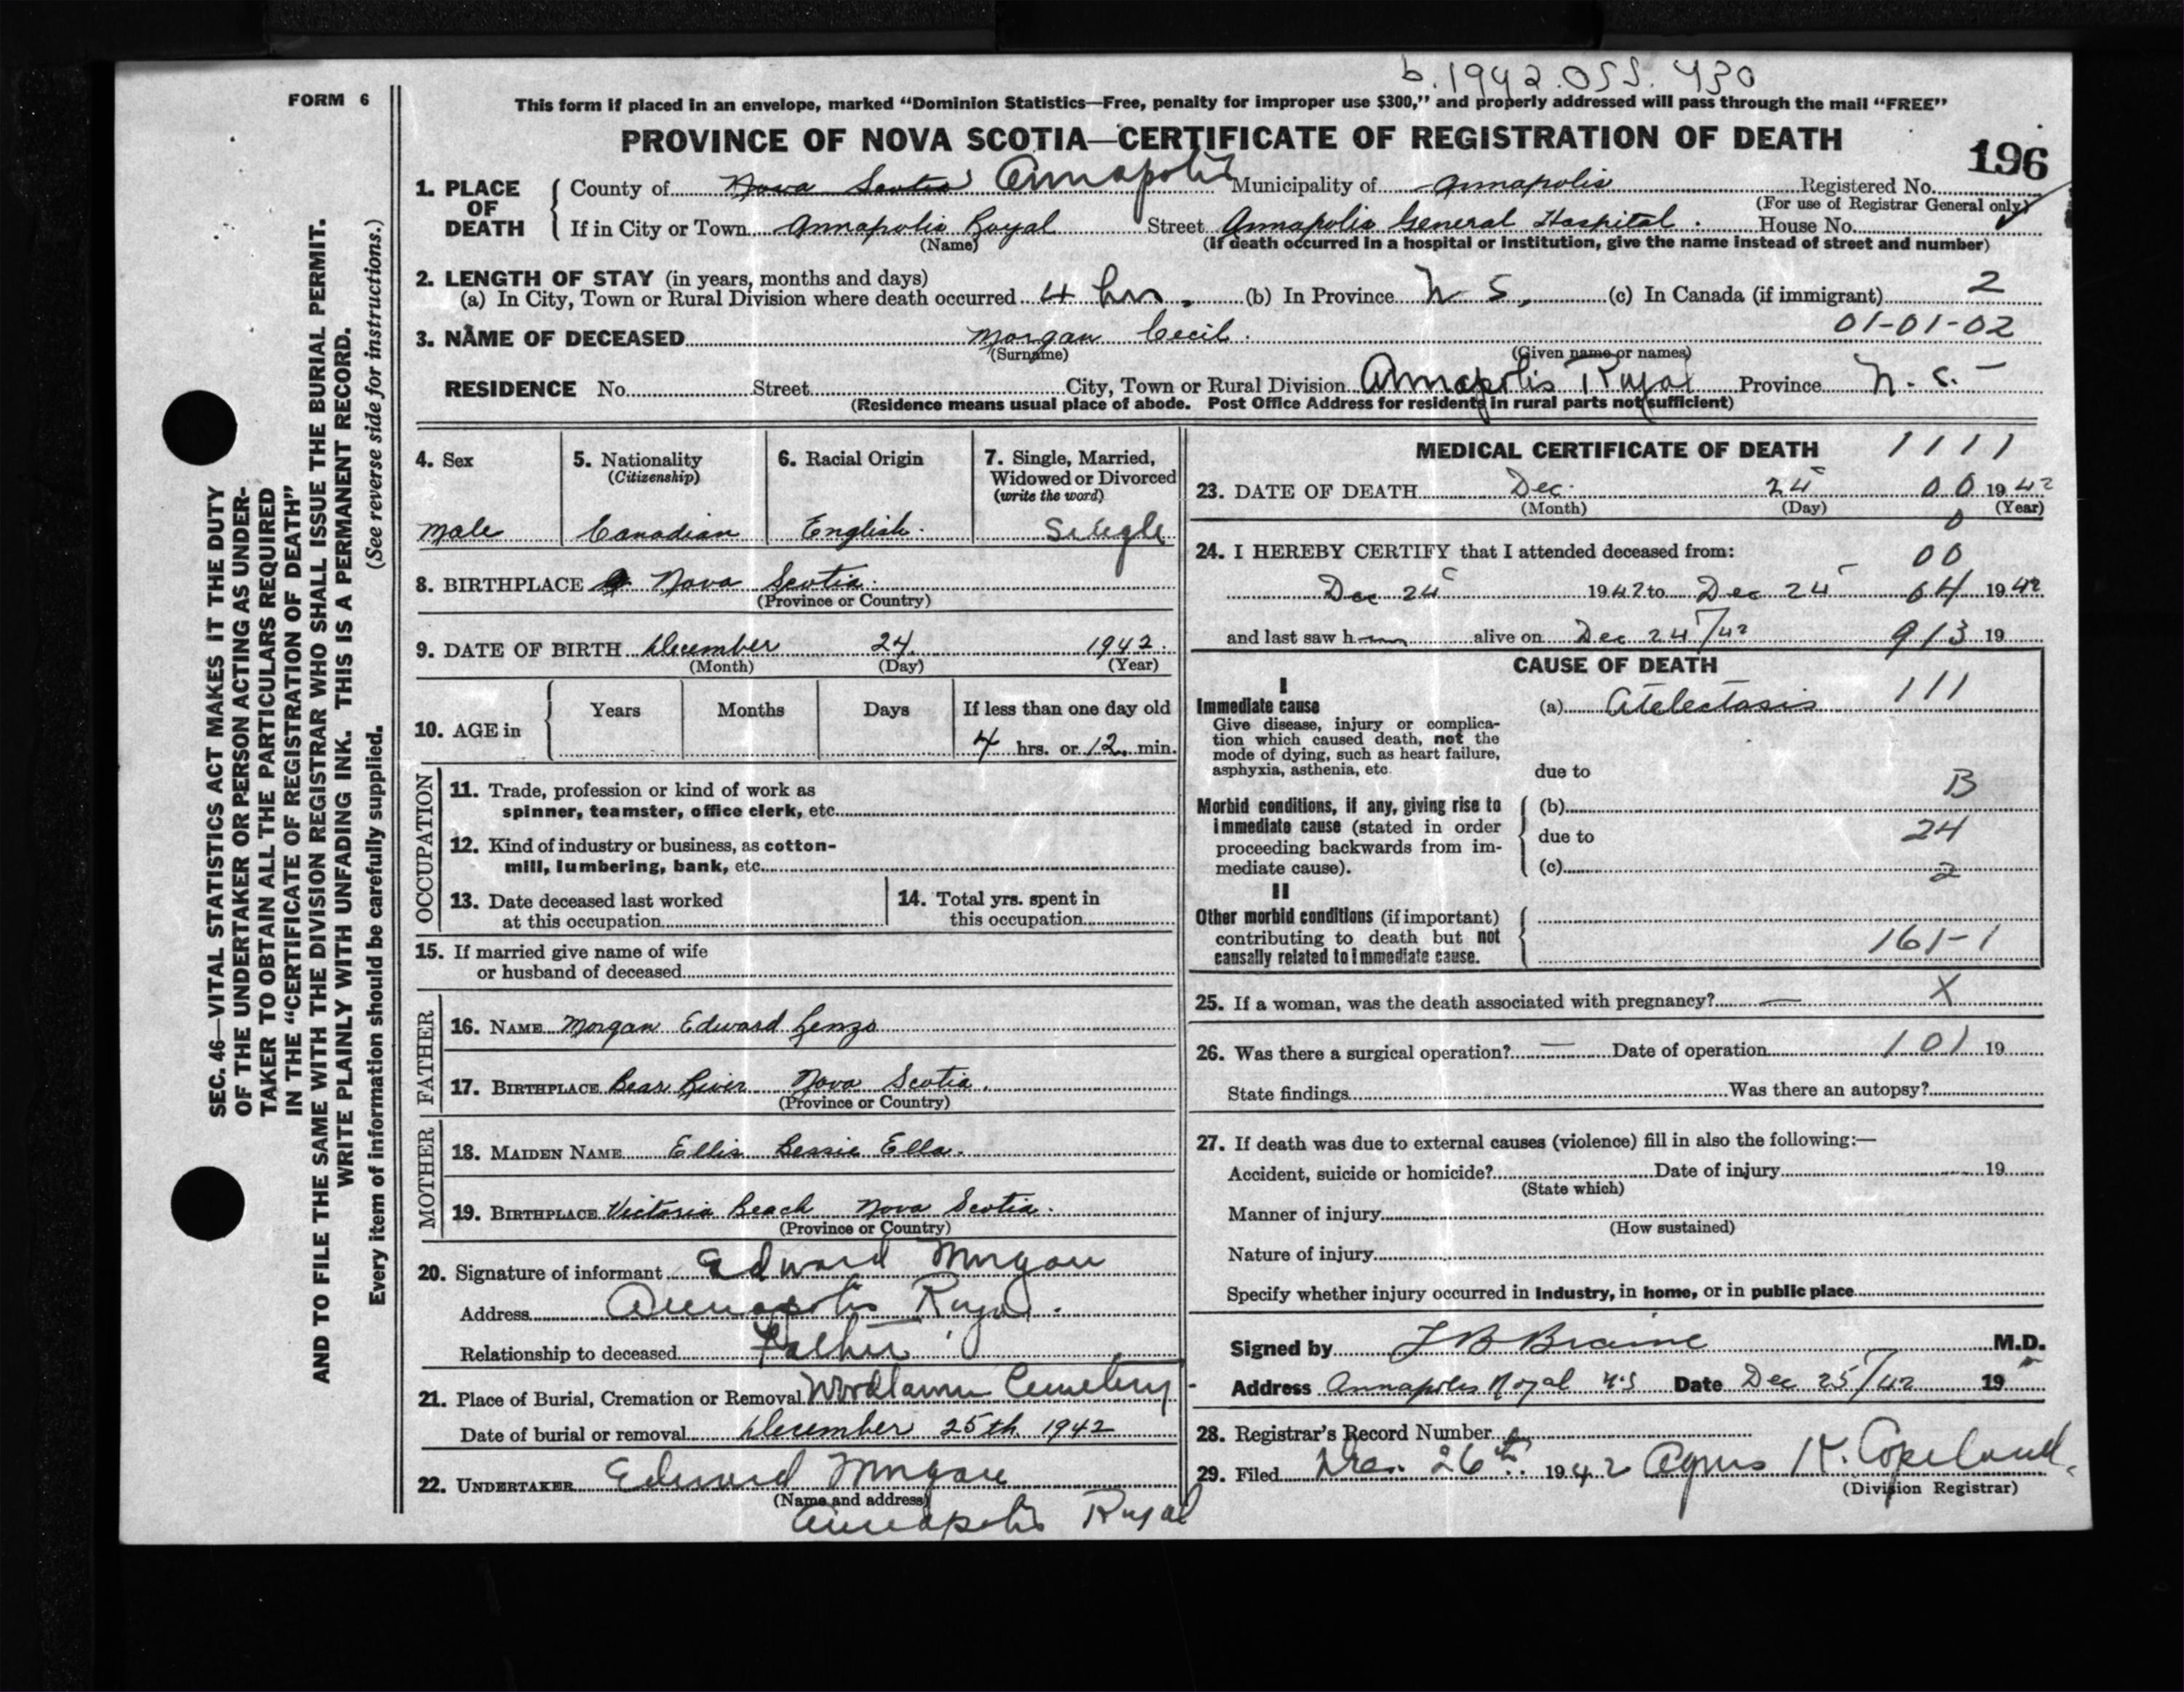 b. 1942.055.430
FORM 6
This form if placed in an envelope, marked “Dominion Statistics—Free, penalty for improper use $300,” and properly addressed will pass through the mail “FREE”
PROVINCE OF NOVA SCOTIA—CERTIFICATE OF REGISTRATION OF DEATH
196
1. PLACE OF DEATH
County of Nova Scotia Annapolis Municipality of Annapolis Registered No.
(For use of Registrar General only)
If in City or Town Annapolis Royal Street Annapolis General Hospital. House No.
(Name) (If death occurred in a hospital or institution, give the name instead of street and number)
2. LENGTH OF STAY (in years, months and days)
(a) In City, Town or Rural Division where death occurred 4 hrs. (b) In Province N S. (c) In Canada (if immigrant) 2
01-01-02
3. NAME OF DECEASED Morgan Cecil.
(Surname) (Given name or names)
RESIDENCE No. Street City, Town or Rural Division Annapolis Royal Province N. S.
(Residence means usual place of abode. Post Office Address for residents in rural parts not sufficient)
4. Sex
Male
5. Nationality
(Citizenship)
Canadian
6. Racial Origin
English.
7. Single, Married,
Widowed or Divorced
(write the word)
Single
8. BIRTHPLACE Nova Scotia.
(Province or Country)
9. DATE OF BIRTH December 24. 1942.
(Month) (Day) (Year)
10. AGE in
Years Months Days If less than one day old
4 hrs. or 12 min.
OCCUPATION
11. Trade, profession or kind of work as
spinner, teamster, office clerk, etc.
12. Kind of industry or business, as cotton-
mill, lumbering, bank, etc.
13. Date deceased last worked
at this occupation
14. Total yrs. spent in
this occupation
15. If married give name of wife
or husband of deceased
FATHER
16. NAME Morgan Edward
17. BIRTHPLACE Bear River Nova Scotia.
(Province or Country)
MOTHER
18. MAIDEN NAME Ellis Bessie Ella.
19. BIRTHPLACE Victoria Beach Nova Scotia.
(Province or Country)
20. Signature of informant Edward Morgan
Address Annapolis Royal.
Relationship to deceased Father
21. Place of Burial, Cremation or Removal Woodlawn Cemetery
Date of burial or removal December 25th 1942
22. UNDERTAKER Edward Morgan
(Name and address)
Annapolis Royal
MEDICAL CERTIFICATE OF DEATH 1111
23. DATE OF DEATH Dec. 24 00 1942
(Month) (Day) (Year)
0
24. I HEREBY CERTIFY that I attended deceased from:
00
Dec 24 1942 to Dec 24 64 1942
and last saw h alive on Dec 24/42 913 19
CAUSE OF DEATH
I
Immediate cause
Give disease, injury or complica-
tion which caused death, not the
mode of dying, such as heart failure,
asphyxia, asthenia, etc.
(a) Atelectasis 111
due to
B
Morbid conditions, if any, giving rise to
immediate cause (stated in order
proceeding backwards from im-
mediate cause).
(b)
due to 24
(c) 2
II
Other morbid conditions (if important)
contributing to death but not
causally related to immediate cause.
161-1
25. If a woman, was the death associated with pregnancy? — X
26. Was there a surgical operation? — Date of operation 101 19
State findings Was there an autopsy?
27. If death was due to external causes (violence) fill in also the following:—
Accident, suicide or homicide? Date of injury 19
(State which)
Manner of injury
(How sustained)
Nature of injury
Specify whether injury occurred in Industry, in home, or in public place
Signed by L B Braine M.D.
Address Annapolis Royal N.S Date Dec 25/42 19
28. Registrar's Record Number
29. Filed Dec. 26th 1942 Agnes K. Copeland.
(Division Registrar)
SEC. 46—VITAL STATISTICS ACT MAKES IT THE DUTY
OF THE UNDERTAKER OR PERSON ACTING AS UNDER-
TAKER TO OBTAIN ALL THE PARTICULARS REQUIRED
IN THE “CERTIFICATE OF REGISTRATION OF DEATH”
AND TO FILE THE SAME WITH THE DIVISION REGISTRAR WHO SHALL ISSUE THE BURIAL PERMIT.
WRITE PLAINLY WITH UNFADING INK. THIS IS A PERMANENT RECORD.
Every item of information should be carefully supplied. (See reverse side for instructions.)